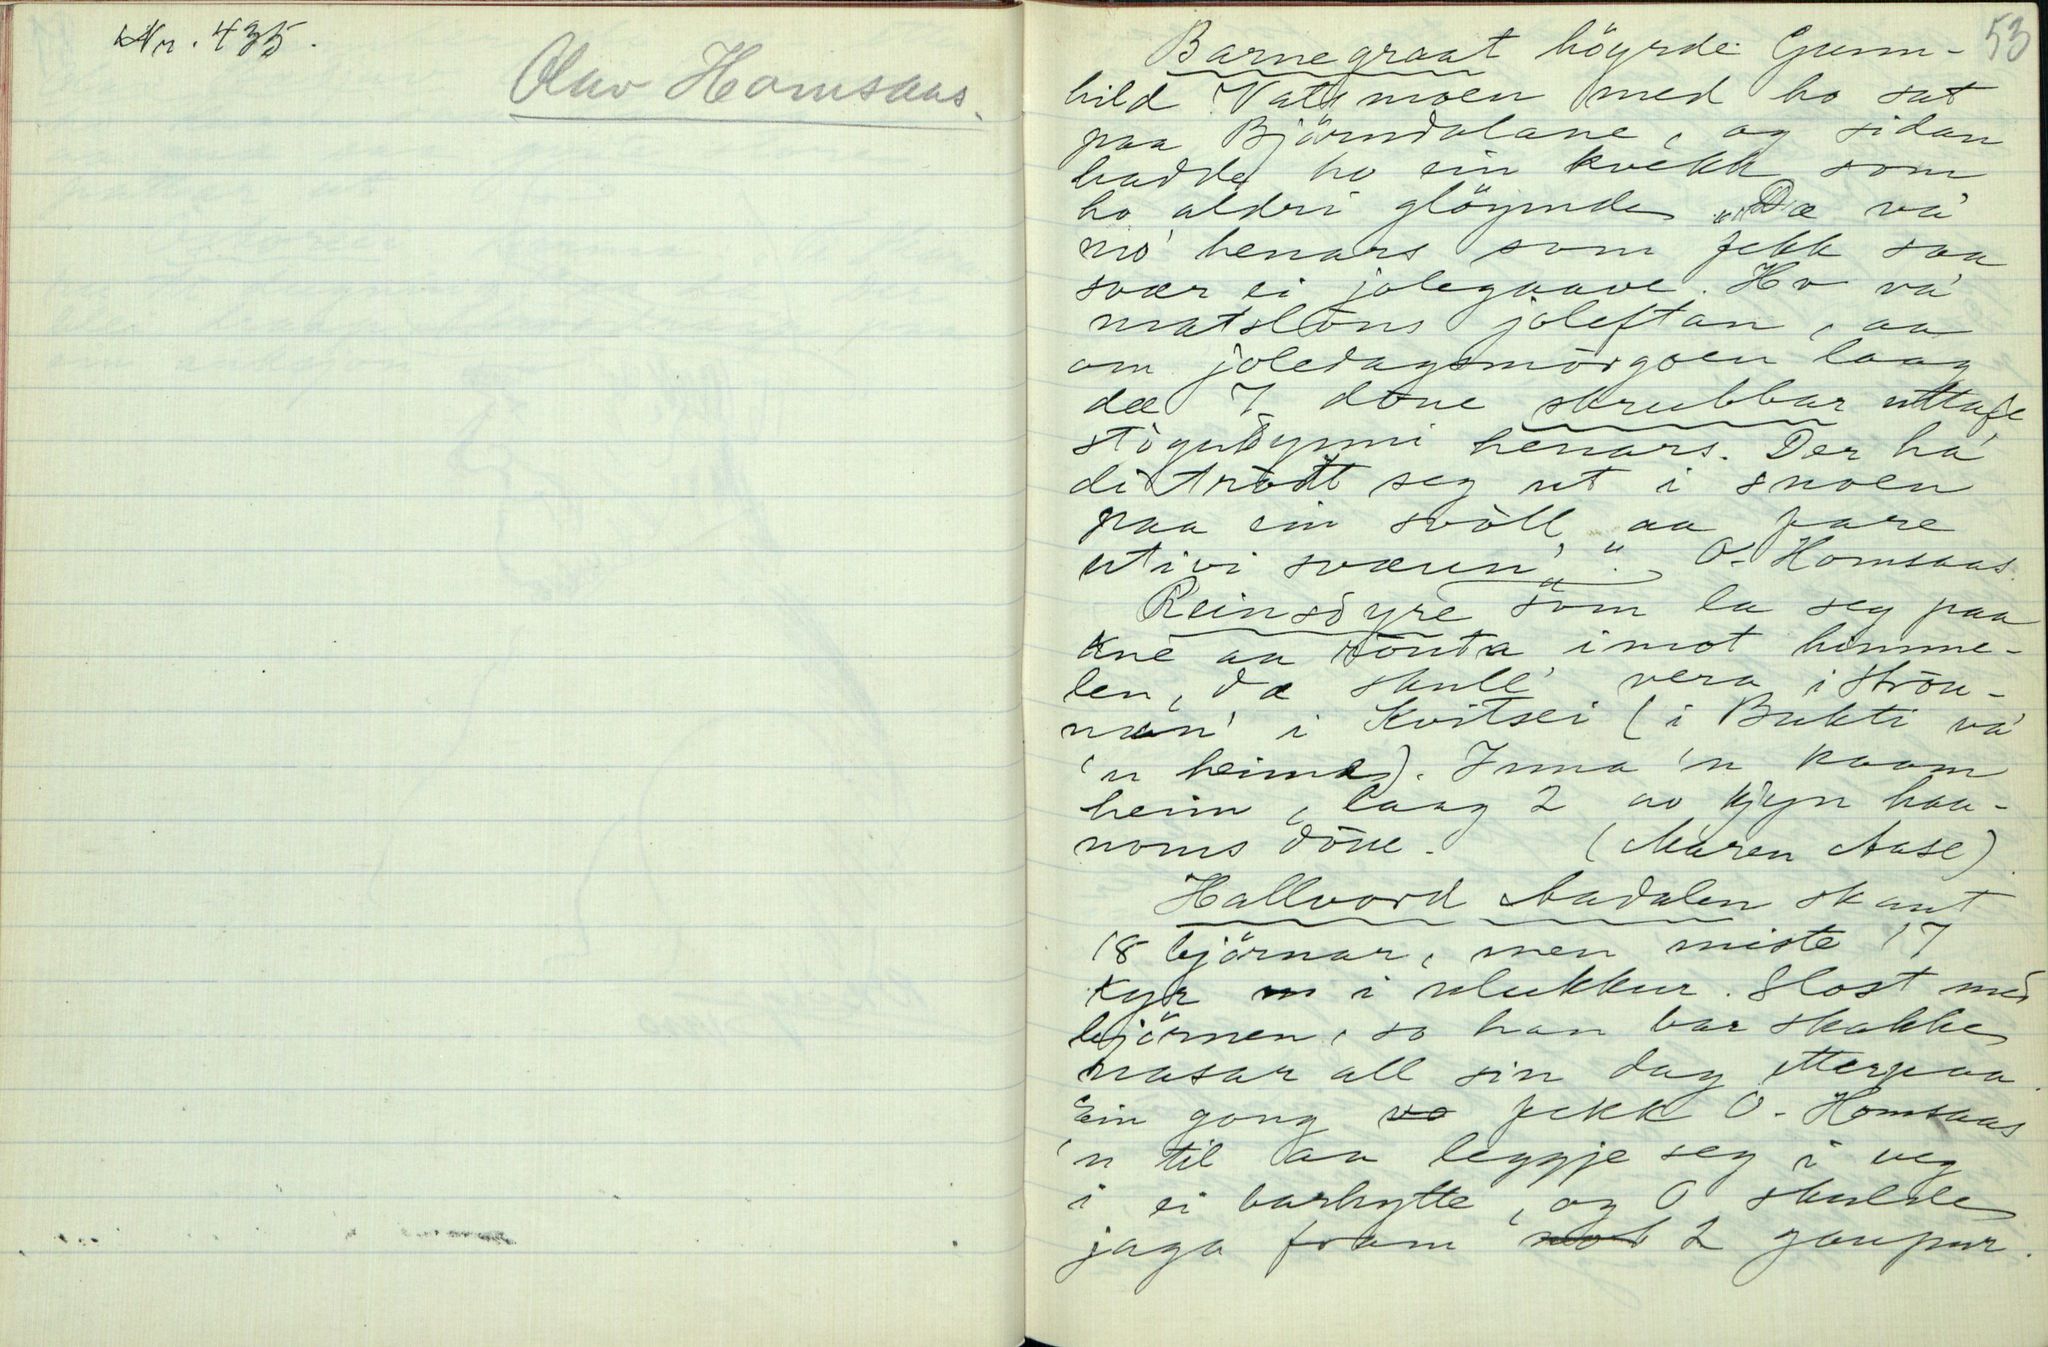 Nr. 435.
Olav Homsaas.
53
Barnegraat höyrde Gunn-
hild Vatsmoen med ho sat
paa Bjørndalane, og sidan
hadde ho ein kvekk som
ho aldri glöymde. "Dæ va'
mo' henars som fekk saa
svær ei jolegaave. Ho va'
matslöns joleftan, aa
om joledagsmörgoen laag
dæ 7 döue skrubbar uttafe
stogudynni henars. Der ha'
di trödt seg ut i snoen
paa ein svöll, aa fare
utivi sværen'." O. Homsaas.
Reinsdyre som la seg paa
kne aa rönta imot himme-
len, dæ skull' vera i Ströu-
næn' i Kvitsei (i Bukti va'
'n heime). Inna 'n kaam
heim, laag 2 av kjyn haa-
noms döue. (Maren Aase).
Hallvord Aadalen skaut
18 björnar, men miste 17
kyr i ulukkur. Slost med
björnen, so han bar skakke
nasar all sin dag etterpaa.
Ein gong fekk O. Homsaas
'n til aa leggje seg i veg
i ei barhytte, og O skulde
jaga fram 2 gaupur.